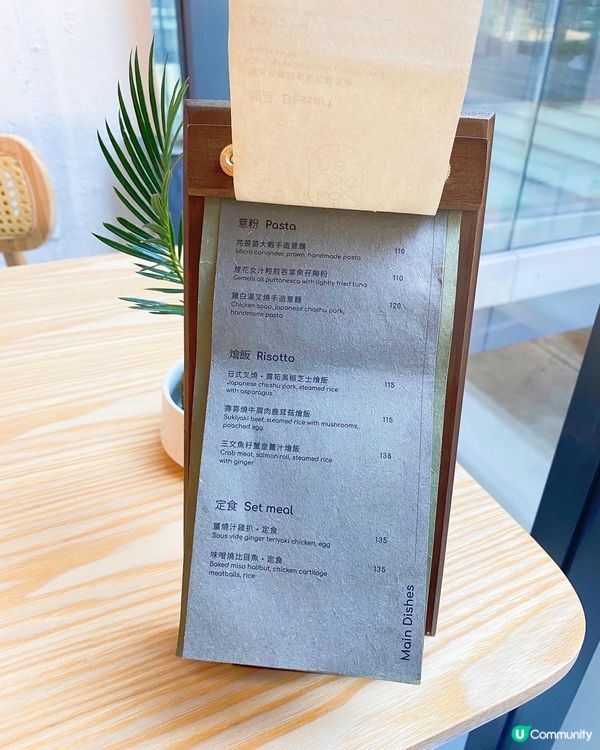 甜品 Dessert
意粉 Pasta
芫荽苗大蝦手造意麵
Micro coriander, prawn, handmade pasta 110
煙花女汁輕煎吞拿魚孖辮粉 110
Gemelli all puttanesca with lightly fried tuna
雞白湯叉燒手造意麵 120
Chicken soup, japanese chashu pork,
handmade pasta
燴飯 Risotto
日式叉燒・露筍黑椒芝士燴飯
Japanese chashu pork, steamed rice 115
with asparagus
壽喜燒牛肩肉鹿茸菇燴飯
Sukiyaki beef, steamed rice with mushrooms, 115
poached egg
三文魚籽蟹皇薑汁燴飯
Crab meat, salmon roll, steamed rice 138
with ginger
定食 Set meal
薑燒汁雞扒・定食
Sous vide ginger teriyaki chicken, egg 135
味噌燒比目魚・定食
Baked miso halibut, chicken cartilage 135
meatballs, rice
Main Dishes
U Community